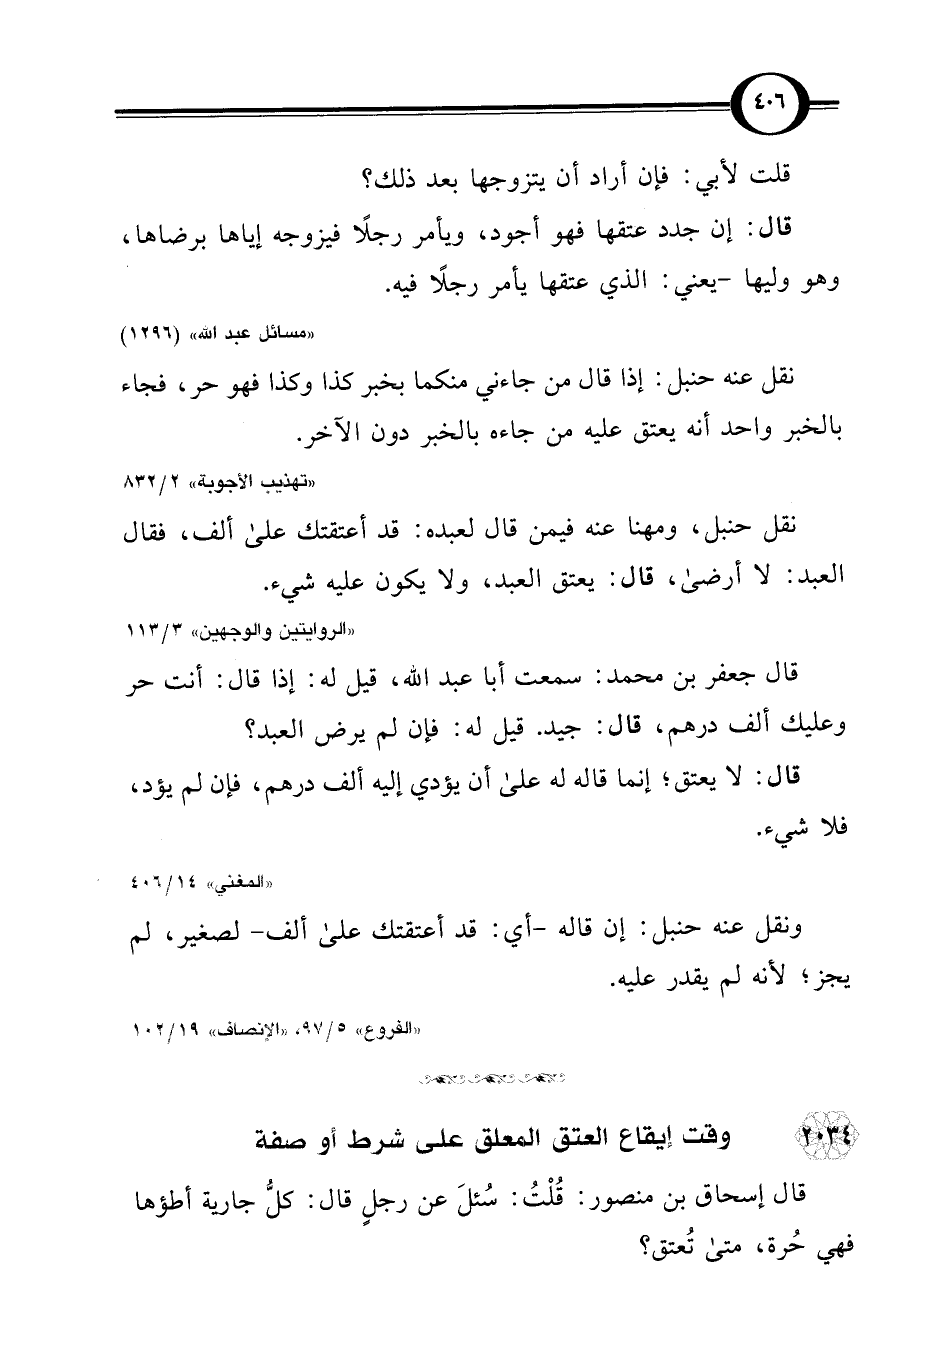 ٤٠٦
قلت لأبي: فإن أراد أن يتزوجها بعد ذلك؟
قال: إن جدد عتقها فهو أجود، ويأمر رجلًا فيزوجه إياها برضاها،
وهو وليها -يعني: الذي عتقها يأمر رجلًا فيه.
«مسائل عبد الله» (١٢٩٦)
نقل عنه حنبل: إذا قال من جاءني منكما بخبر كذا وكذا فهو حر، فجاء
بالخبر واحد أنه يعتق عليه من جاءه بالخبر دون الآخر.
«تهذيب الأجوبة» ٨٣٢/٢
نقل حنبل، ومهنا عنه فيمن قال لعبده: قد أعتقتك علىٰ ألف، فقال
العبد: لا أرضىٰ، قال: يعتق العبد، ولا يكون عليه شيء.
«الروايتين والوجهين» ١١٣/٣
قال جعفر بن محمد: سمعت أبا عبد الله، قيل له: إذا قال: أنت حر
وعليك ألف درهم، قال: جيد. قيل له: فإن لم يرض العبد؟
قال: لا يعتق؛ إنما قاله له علىٰ أن يؤدي إليه ألف درهم، فإن لم يؤد،
فلا شيء.
«المغني» ٤٠٦/١٤
ونقل عنه حنبل: إن قاله -أي: قد أعتقتك علىٰ ألف- لصغير، لم
يجز؛ لأنه لم يقدر عليه.
«الفروع» ٩٧/٥، «الإنصاف» ١٠٢/١٩
٢٠٣٤ وقت إيقاع العتق المعلق على شرط أو صفة
قال إسحاق بن منصور: قُلْتُ: سُئلَ عن رجلٍ قال: كلُّ جارية أطؤها
فهي حُرة، متىٰ تُعتق؟